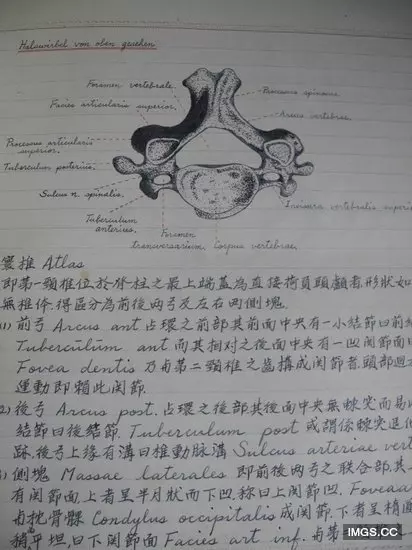 Halswirbel von oben gesehen
Foramen vertebrale.
Facies articularis superior.
Processus spinosus
Arcus vertebrae.
Processus articularis
superior.
Tuberculum posterius.
Sulcus n. spinalis.
Tuberculum
anterius.
Foramen
transversarium.
Corpus vertebrae.
Incisura vertebralis superior
寰椎 Atlas
即第一頸椎位於脊柱之最上端蓋為直接荷負頭顱者形狀如
無椎体.得區分為前後兩弓及左右両側塊.
1) 前弓 Arcus ant 占環之前部其前面中央有一小結節曰前結
Tuberculum ant 而其相对之後面中央有一凹関節面曰
Fovea dentis 乃与第二頸椎之齒構成関節者.頭部迴
運動即賴此関節.
2) 後弓 Arcus post. 占環之後部其後面中央無棘突而易以
結節曰後結節. Tuberculum post 或謂係棘突退化
跡.後弓上緣有溝曰椎動脈溝 Sulcus arteriae vert
) 側塊 Massae laterales 即前後両弓之联合部.其
有関節面上者呈半月狀而下凹.称曰上関節凹. Foveae
与枕骨髁 Condylus occipitalis 成関節.下者呈橢
稍平坦.曰下関節面 Facies art inf. 与第
IMGS.CC